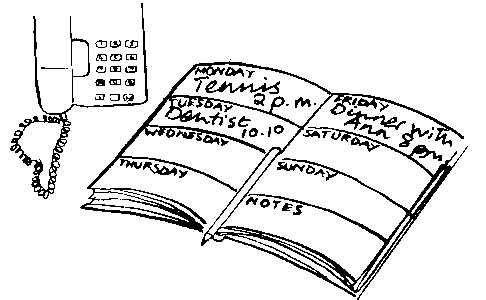 MONDAY
Tennis
2 p.m.
TUESDAY
Dentist 10.10
WEDNESDAY
THURSDAY
FRIDAY
Dinner with
Ann 8pm
SATURDAY
SUNDAY
NOTES